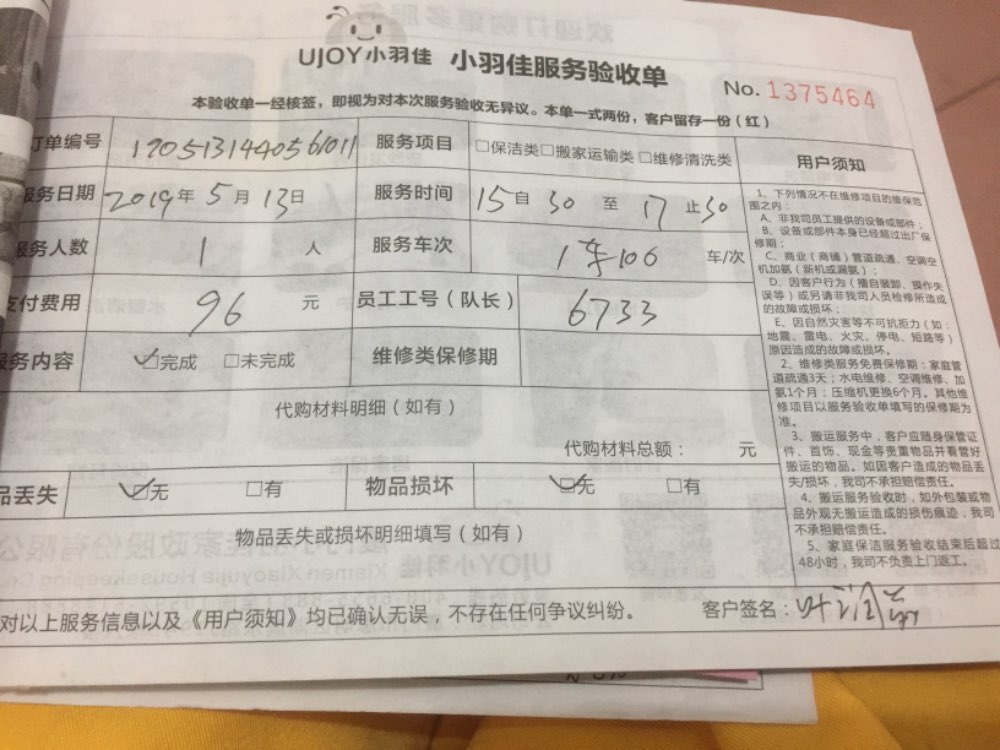 UJOY小羽佳 小羽佳服务验收单
No. 1375464
本验收单一经核签，即视为对本次服务验收无异议。本单一式两份，客户留存一份（红）
订单编号 19051314405661011 服务项目 □保洁类□搬家运输类□维修清洗类
服务日期 2019年5月13日 服务时间 15自30至17止30
服务人数 1人 服务车次 1车106 车/次
支付费用 96元 员工工号（队长） 6733
服务内容 ☑完成 □未完成 维修类保修期
代购材料明细（如有）
代购材料总额： 元
品丢失 ☑无 □有 物品损坏 ☑无 □有
物品丢失或损坏明细填写（如有）
对以上服务信息以及《用户须知》均已确认无误，不存在任何争议纠纷。 客户签名：
用户须知
1、下列情况不在维修项目的维保范
围之内：
A、非我司员工提供的设备或部件；
B、设备或部件本身已经超过出厂保
修期；
C、商业（商铺）管道疏通、空调空
机加氨（新机或漏氨）；
D、因客户行为（擅自装卸、操作失
误等）或另请非我司人员检修所造成
的故障或损坏；
E、因自然灾害等不可抗拒力（如：
地震、雷电、火灾、停电、短路等）
原因造成的故障或损坏。
2、维修类服务免费保修期：家庭管
道疏通3天；水电维修、空调维修、加
氨1个月；压缩机更换6个月。其他维
修项目以服务验收单填写的保修期为
准。
3、搬运服务中，客户应随身保管证
件、首饰、现金等贵重物品并看管好
搬运的物品。如因客户造成的物品丢
失/损坏，我司不承担赔偿责任。
4、搬运服务验收时，如外包装或物
品外观无搬运造成的损伤痕迹，我司
不承担赔偿责任。
5、家庭保洁服务验收结束后超过
48小时，我司不负责上门返工。